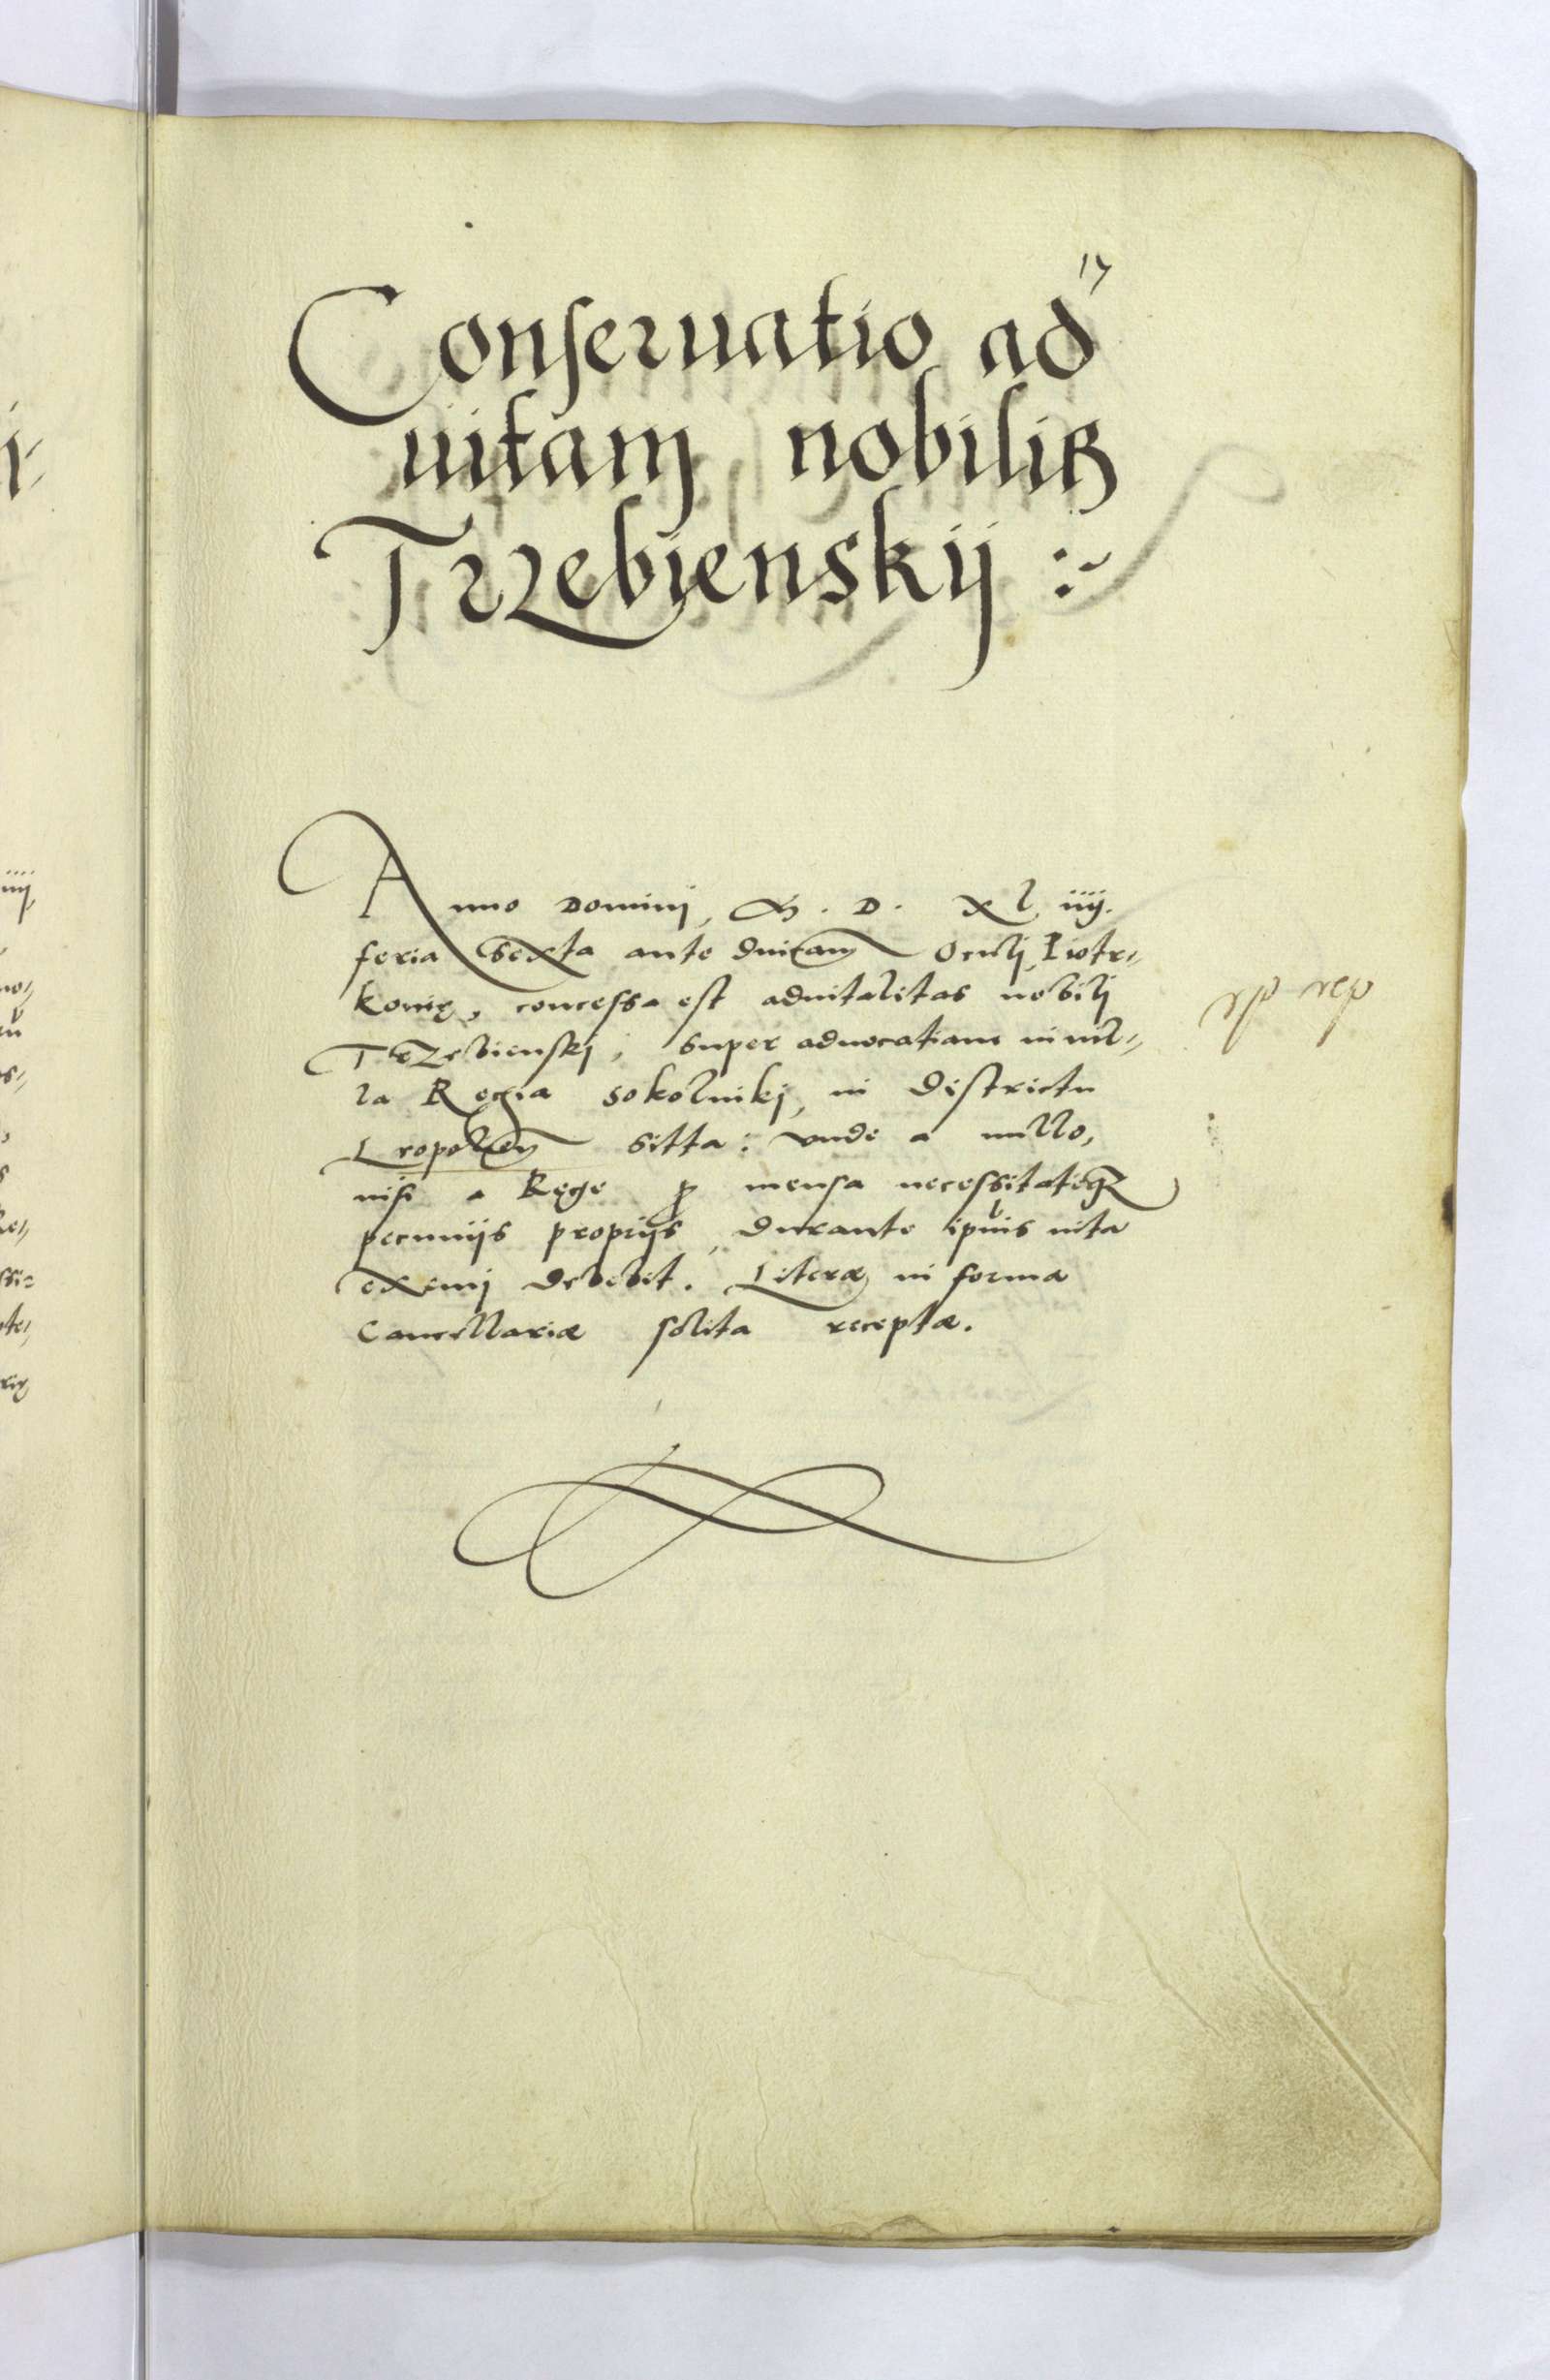 17
Conseruatio ad
uitam nobilis
Trzebienskij
Anno Domini, M. D. Xl iiij.
feria Sexta ante dnicam Oculj, Piotr-
kouię, concessa est aduitalitas nobilj
Trzebienskj, super aduocatiam in uil-
la Regia Sokolnikj, in districtu
Leopolien sitta: vnde a nullo,
nisi a Rege p mensa necessitateqz
pecuniis proprijs, durante ipuis uita
eximj debebit. Literæ in forma
Cancellariæ solita receptæ.